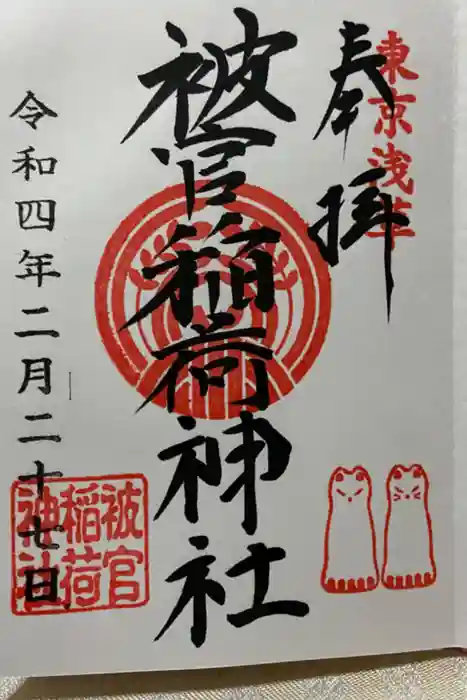 奉拝
東京浅草
被官稲荷神社
令和四年二月二十七日
被官
稲荷
神社